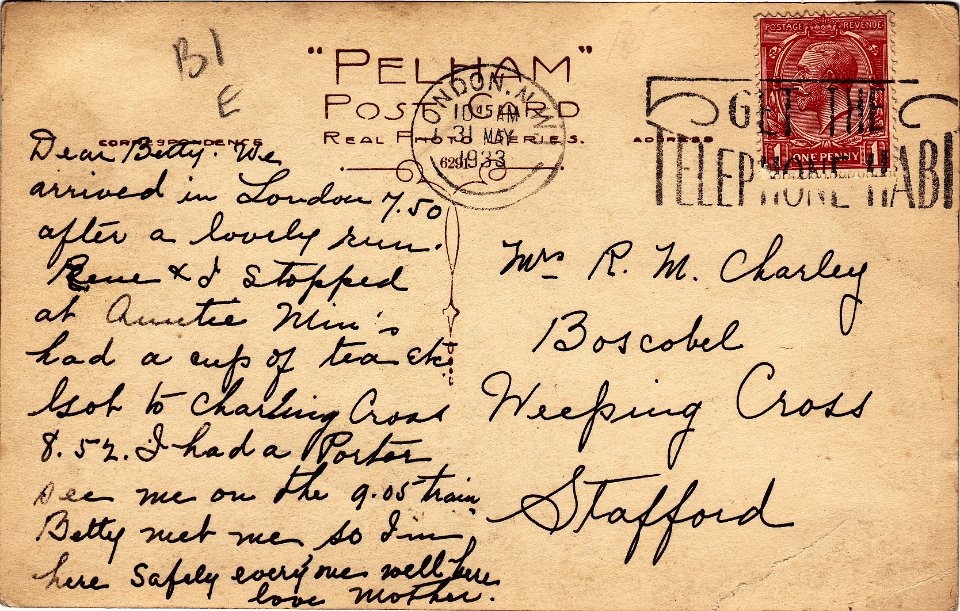 B1
E
"PELHAM"
POST CARD
REAL PHOTO SERIES.
CORRESPONDENCE
ADDRESS
LONDON. N.W.
10 15 AM
31 MAY
1933
629
POSTAGE REVENUE
1 ONE PENNY 1
GET THE
TELEPHONE HABI
Dear Betty. We
arrived in London 7.50
after a lovely run.
Rene & I stopped
at Auntie Min's
had a cup of tea etc
&got to Charling Cross
8.52. I had a Porter
see me on the 9.05 train
Betty met me so I'm
here safely every one well here
love Mother.
Mrs R. M. Charley
Boscobel
Weeping Cross
Stafford